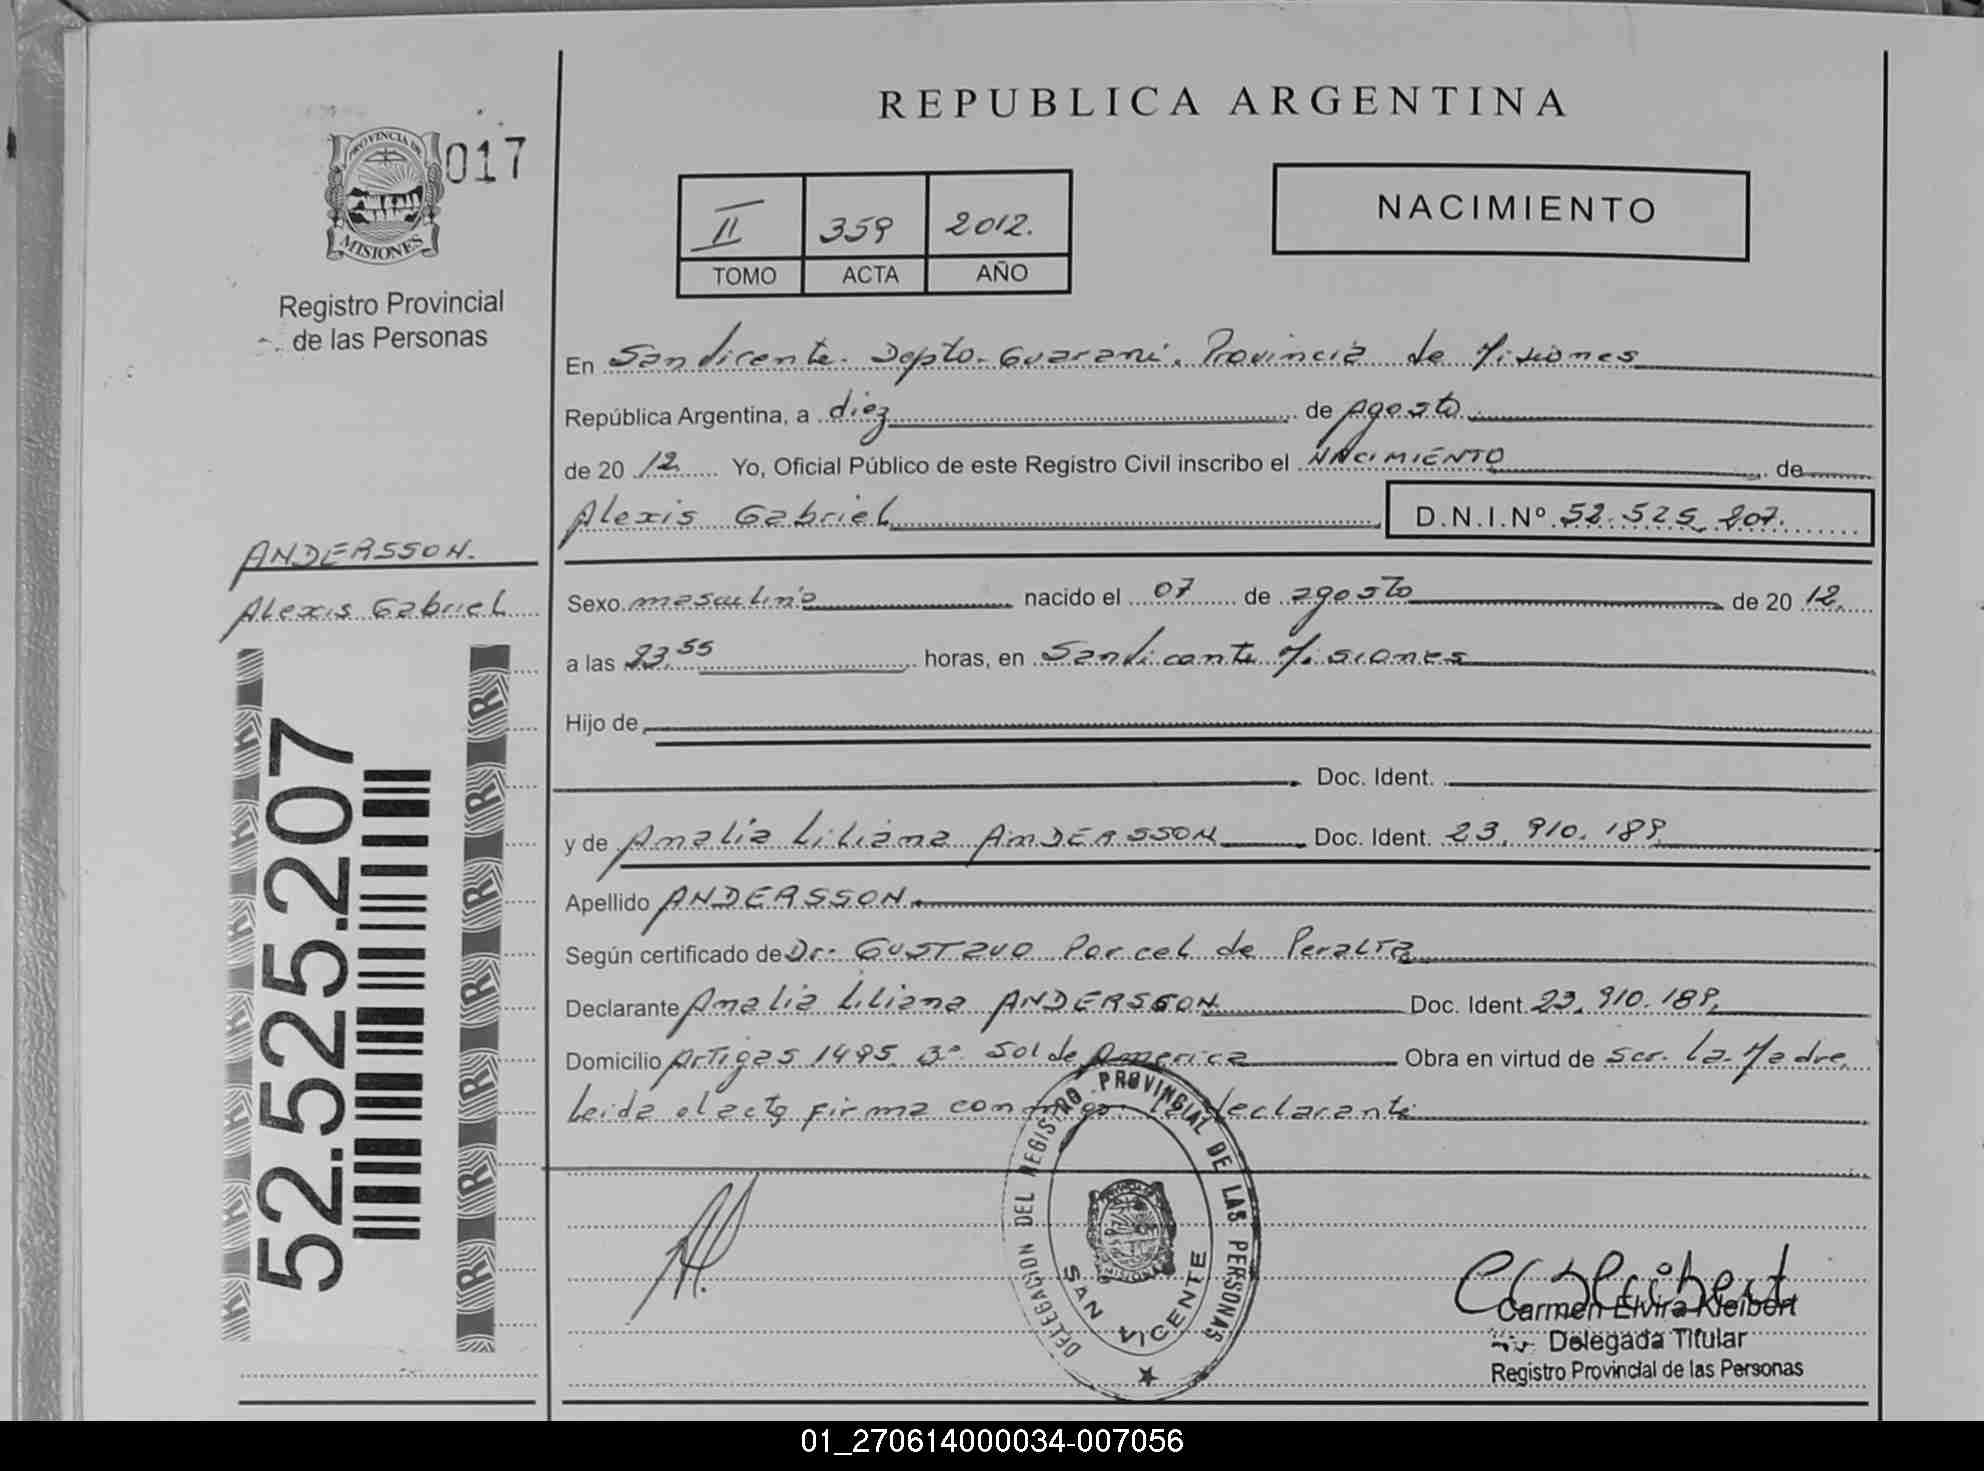 REPUBLICA ARGENTINA
PROVINCIA DE
MISIONES
017
Registro Provincial
de las Personas
II 359 2012.
TOMO ACTA AÑO
NACIMIENTO
En San Vicente. Depto. Guaraní. Provincia de Misiones
República Argentina, a diez de Agosto
de 20 12 Yo, Oficial Público de este Registro Civil inscribo el NACIMIENTO de
Alexis Gabriel D.N.I.Nº 52.525.207.
ANDERSSON.
Alexis Gabriel
Sexo masculino nacido el 07 de agosto de 20 12.
a las 23.55 horas, en San Vicente Misiones
Hijo de
Doc. Ident.
y de Amalia Liliana ANDERSSON Doc. Ident. 23.910.189
Apellido ANDERSSON.
Según certificado de Dr. GUSTAVO Porcel de Peralta
Declarante Amalia Liliana ANDERSSON Doc. Ident. 23.910.189.
Domicilio Artigas 1495. Bº. Sol de America Obra en virtud de ser. La Madre.
Leida el acta firma conmigo la declarante
52.525.207
DELEGACION DEL REGISTRO PROVINCIAL DE LAS PERSONAS
SAN VICENTE
MISIONES
Carmen Elvira Kleibert
Delegada Titular
Registro Provincial de las Personas
01_270614000034-007056